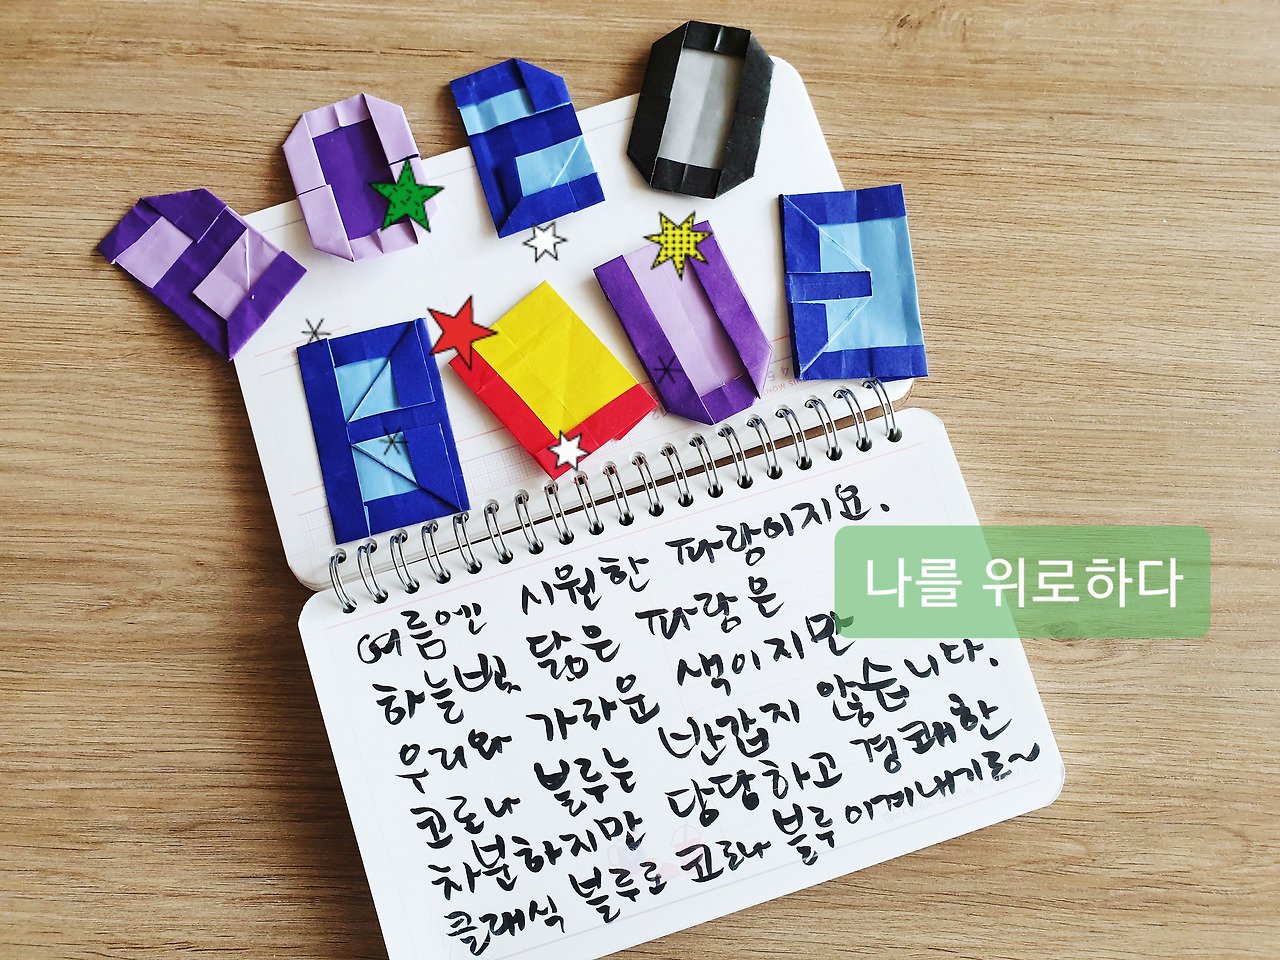 2020
BLUE
여름엔 시원한 파랑이지요.
나를 위로하다
하늘빛 닮은 파랑은
우리와 가까운 색이지만
코로나 블루는 반갑지 않습니다.
차분하지만 당당하고 경쾌한
클래식 블루로 코로나 블루 이겨내기로~